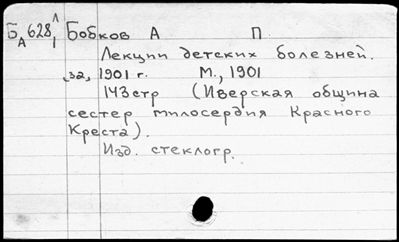 БА 628,1 Л Бобков А П.
Лекции детских болезней.
за, 1901 г. М., 1901
143 стр (Иверская община
сестер милосердия Красного
Креста).
Изд. стеклогр.